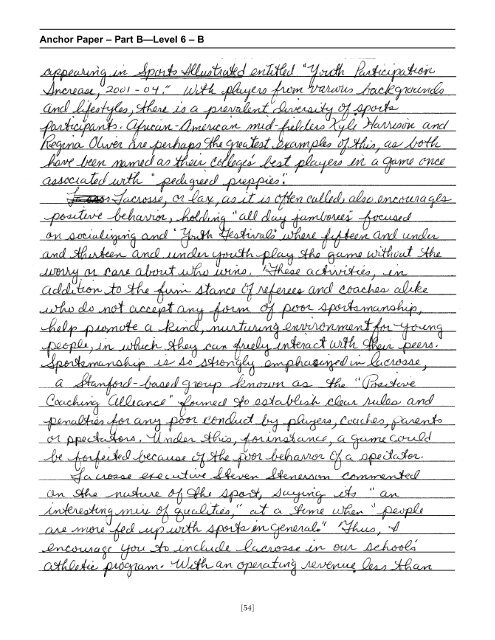 Anchor Paper – Part B—Level 6 – B
appearing in Sports Illustrated entitled "Youth Participation
Increase, 2001-04." With players from various backgrounds
and lifestyles, there is a prevalent diversity of sports
participants. African-American mid-fielders Kyle Harrison and
Regina Oliver are perhaps the greatest examples of this, as both
have been named as their colleges' best players in a game once
associated with "pedigreed preppies".
Lacrosse, or lax, as it is often called, also encourages
positive behavior, holding "all day jamborees" focused
on socializing and "Youth Festivals" where fifteen and under
and thirteen and under youth play the game without the
worry or care about who wins. These activities, in
addition to the firm stance of referees and coaches alike
who do not accept any form of poor sportsmanship,
help promote a kind, nurturing environment for young
people, in which they can freely interact with their peers.
Sportsmanship is so strongly emphasized in lacrosse,
a Stanford-based group known as the "Positive
Coaching Alliance" formed to establish clear rules and
penalties for any poor conduct by players, coaches, parents
or spectators. Under this, for instance, a game could
be forfeited because of the poor behavior of a spectator.
Lacrosse executive Steven Stenersen commented
on the nature of the sport, saying its "an
interesting mix of qualities," at a time when "people
are more fed up with sports in general." Thus, I
encourage you to include lacrosse in our school's
athletic program. With an operating revenue less than
[54]